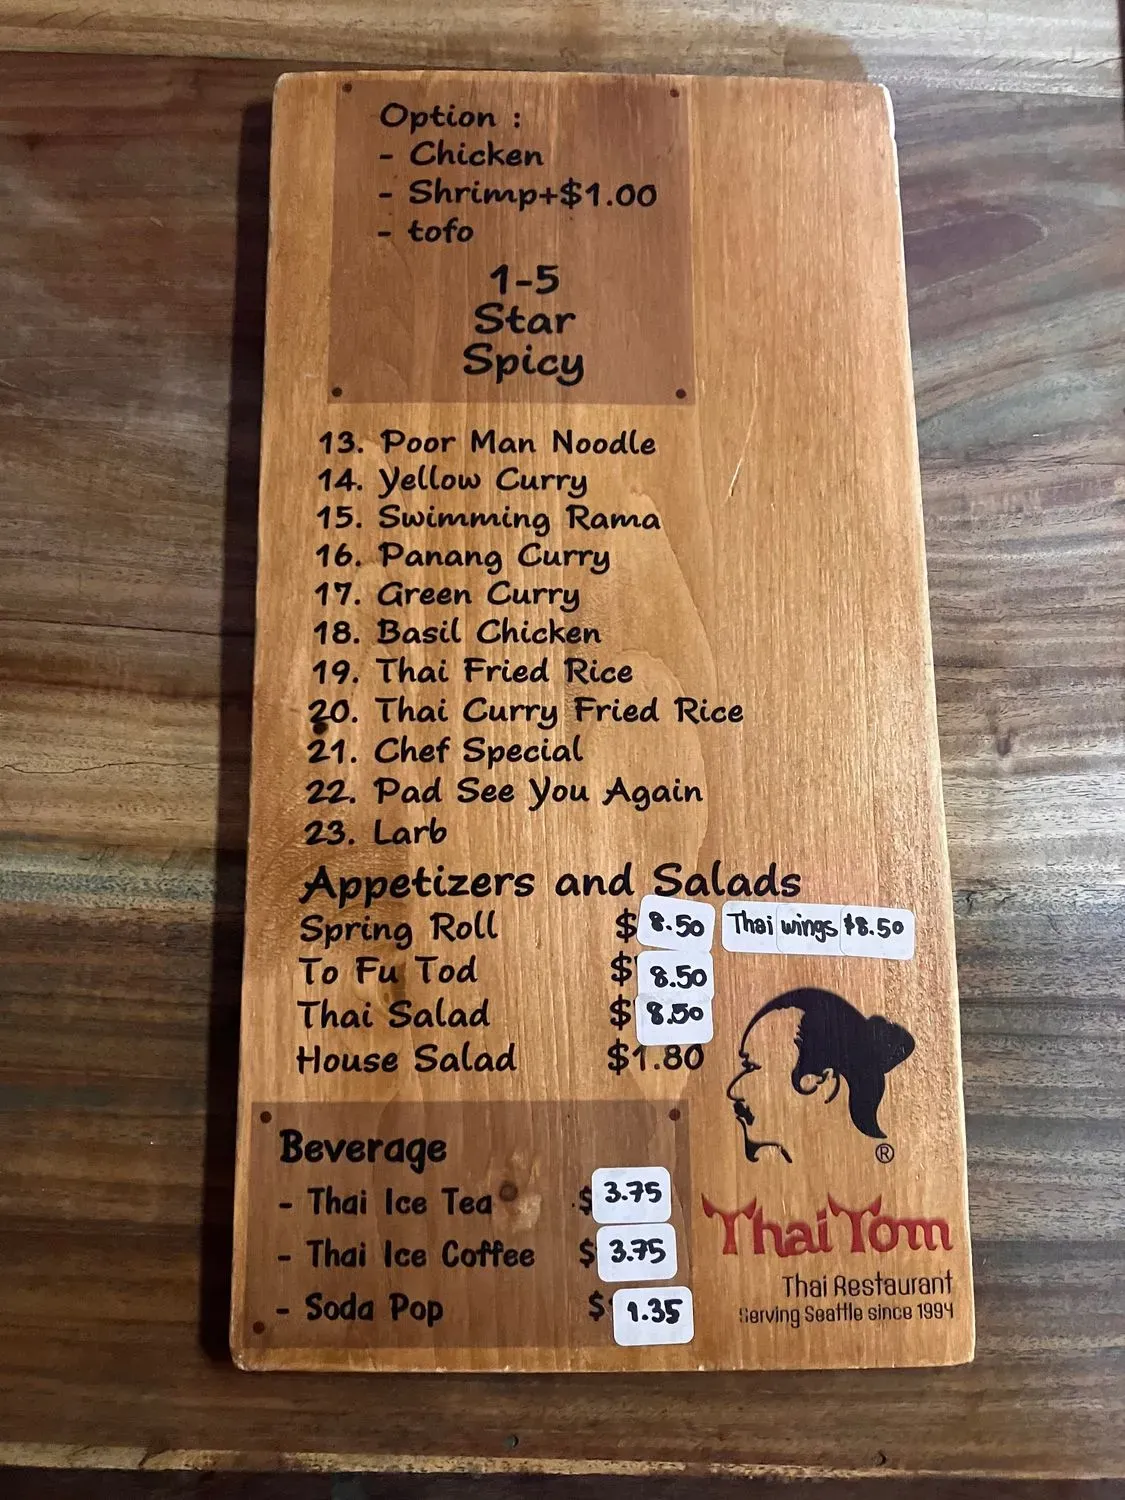 Option :
- Chicken
- Shrimp+$1.00
- tofo
1-5
Star
Spicy
13. Poor Man Noodle
14. Yellow Curry
15. Swimming Rama
16. Panang Curry
17. Green Curry
18. Basil Chicken
19. Thai Fried Rice
20. Thai Curry Fried Rice
21. Chef Special
22. Pad See You Again
23. Larb
Appetizers and Salads
Spring Roll $ 8.50 Thai wings $8.50
To Fu Tod $ 8.50
Thai Salad $ 8.50
House Salad $1.80
®
Beverage
- Thai Ice Tea $ 3.75
- Thai Ice Coffee $ 3.75
- Soda Pop $ 1.35
Thai Tom
Thai Restaurant
Serving Seattle since 1994